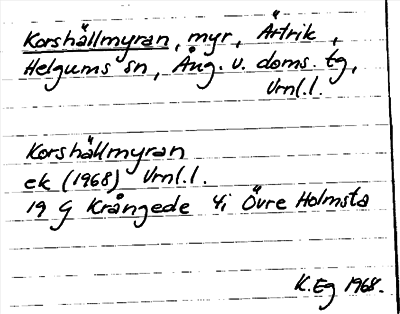 Korshällmyran, myr, Ärtrik,
Helgums sn, Ång. v. doms. tg,
Vrnl.l.
Korshällmyran
ek (1968) Vrnl.l.
19 G Krångede 4i Övre Holmsta
K.Eg 1968.